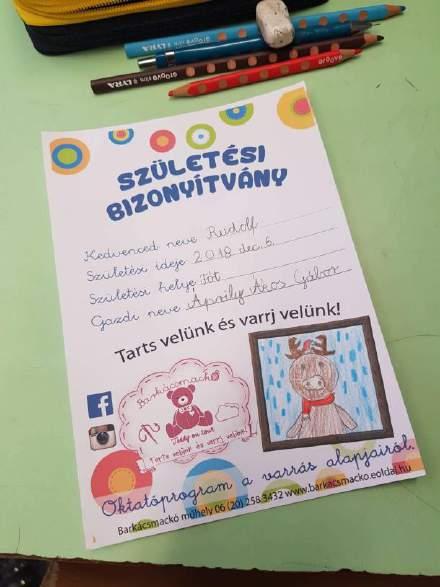 LYRA
GROOVE slim
LYRA GROOVE slim
GROOVE
SZÜLETÉSI
BIZONYÍTVÁNY
Kedvenced neve Rudolf
Születési ideje 2018 dec. 5.
Születési helye Fót
Gazdi neve Áprily Ákos Gábor
Tarts velünk és varrj velünk!
Barkácsmackó
Teddy on tour
Tarts velünk és varrj velünk!
Oktatóprogram a varrás alapjairól.
Barkácsmackó műhely 06 (20) 258 3432 www.barkacsmacko.eoldal.hu